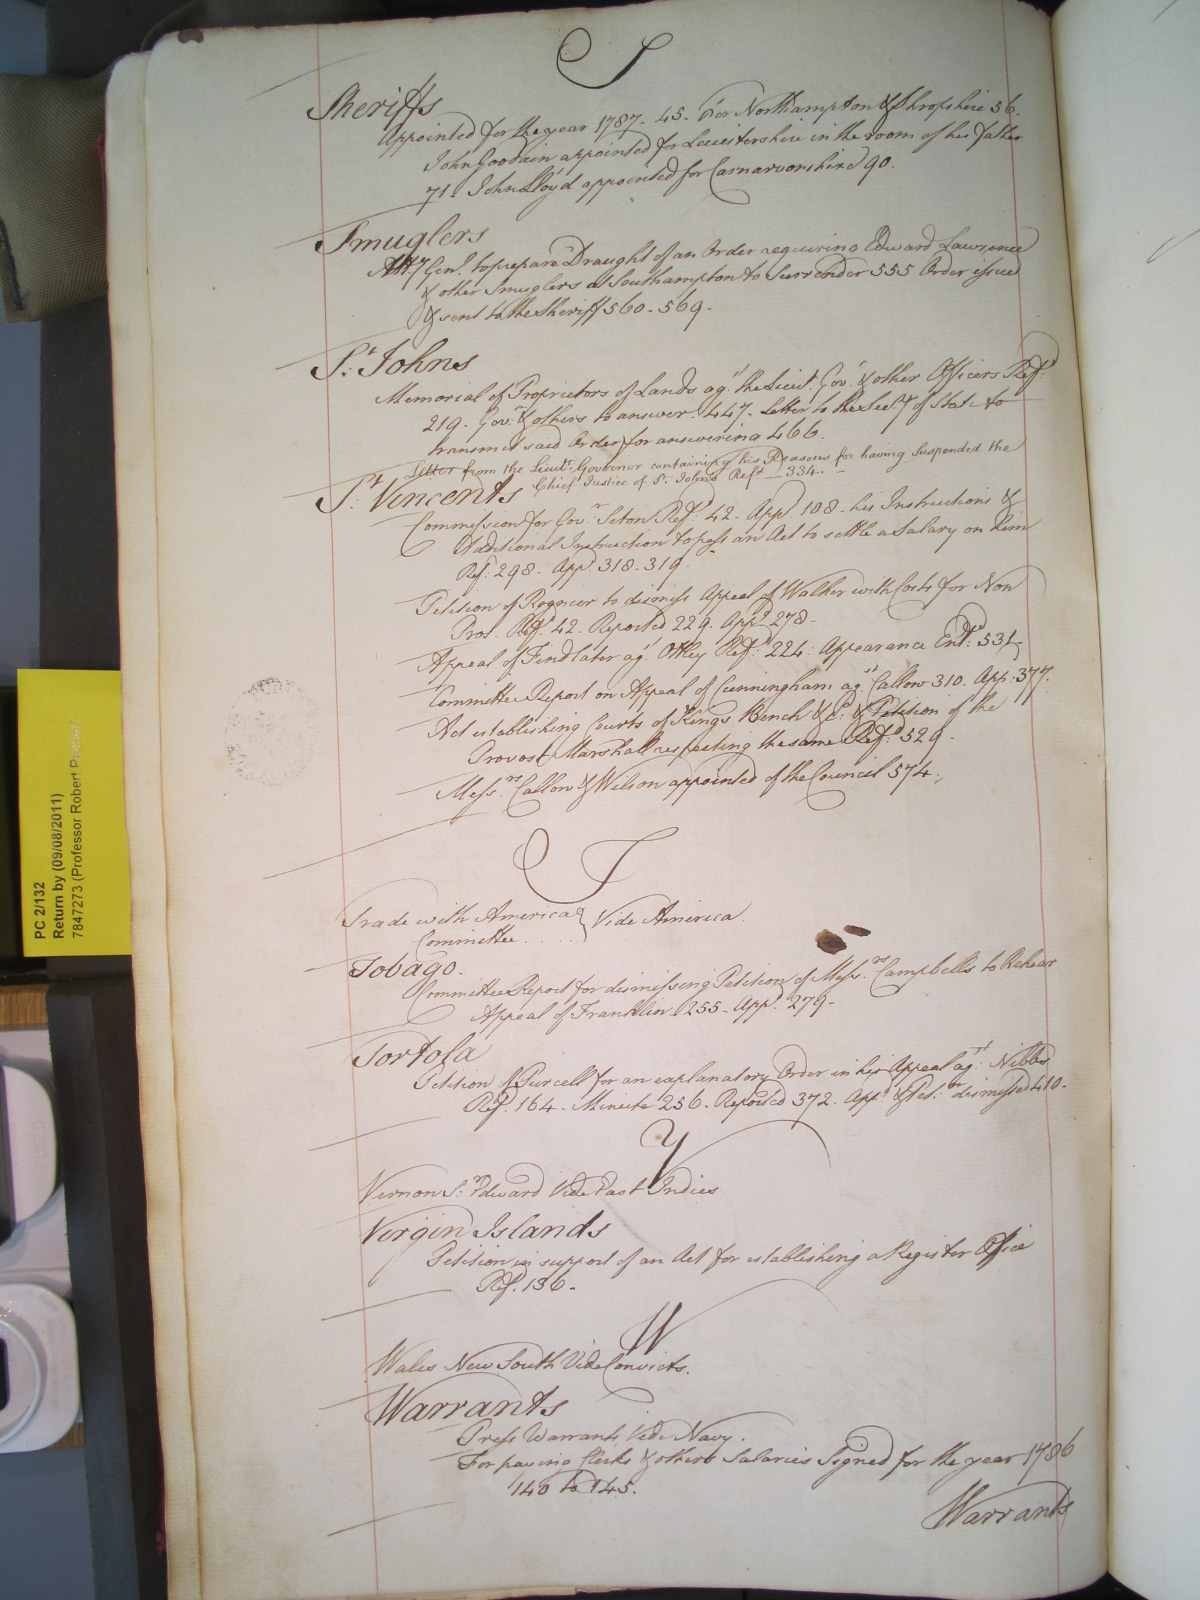 S
Sheriffs
Appointed for the year 1787 - 45. For Northampton & Shropshire 56.
John Goodain appointed for Leicestershire in the room of his father
71. John Lloyd appointed for Carnarvonshire 90.
Smuglers
Att:y Gen.l to prepare Draught of an Order requiring Edward Lawrence
& other Smuglers at Southampton to Surrender 555 Order issued
& sent to the Sheriff 560 - 569.
S:t Johns
Memorial of Proprietors of Lands ag:t the Lieut. Gov:r & other Officers Ref:d
219. Gov:r & others to answer. 447. Letter to the Sec:y of State to
transmit said Order for answering 466.
Letter from the Lieut: Governor containing his Reasons for having Suspended the
Chief Justice of S:t Johns Ref:d - 334. -
S:t Vincents
Commission for Gov:r Seton Ref:d 42 - App:d 108 - his Instructions &
Additional Instruction to pass an Act to settle a Salary on him
Ref:d 298 - App:d 318 - 319 -
Petition of to dismiss Appeal of Walker with Costs for Non
Pros. Ref:d 42. Reported 229. App:d 278 -
Appeal of Findlater ag:t Otley Ref:d 224: Appearance Ent:d 531
Committee Report on Appeal of Cunningham ag:st Callow 310. App: 377.
Act establishing Courts of Kings Bench & C: & Petition of the
Provost Marshall respecting the same Ref:d 529 -
Mess:rs Callow & Wilson appointed of the Council 574.
T
Trade with America } Vide America.
Committee . . . . . .
Tobago.
Committee Report for dismissing Petition of Mess:rs Campbells to Rehear
Appeal of Franklin 255 - App:d 279 -
Tortola
Petition of Purcell for an explanatory Order in his Appeal ag:st Nibbs
Ref:d 164 - Minute 256 - Reported 372. App:d & Pet:on dismissed 410 -
V
Vernon S:r Edward Vide East Indies
Virgin Islands
Petition in support of an Act for establishing a Register Office
Ref:d 136 -
W
Wales New South Vide Convicts.
Warrants
Press Warrants Vide Navy.
For paying Clerks & others Salaries Signed for the year 1786
140 to 145.
Warrants
PC 2/132
Return by (09/08/2011)
7847273 (Professor Robert